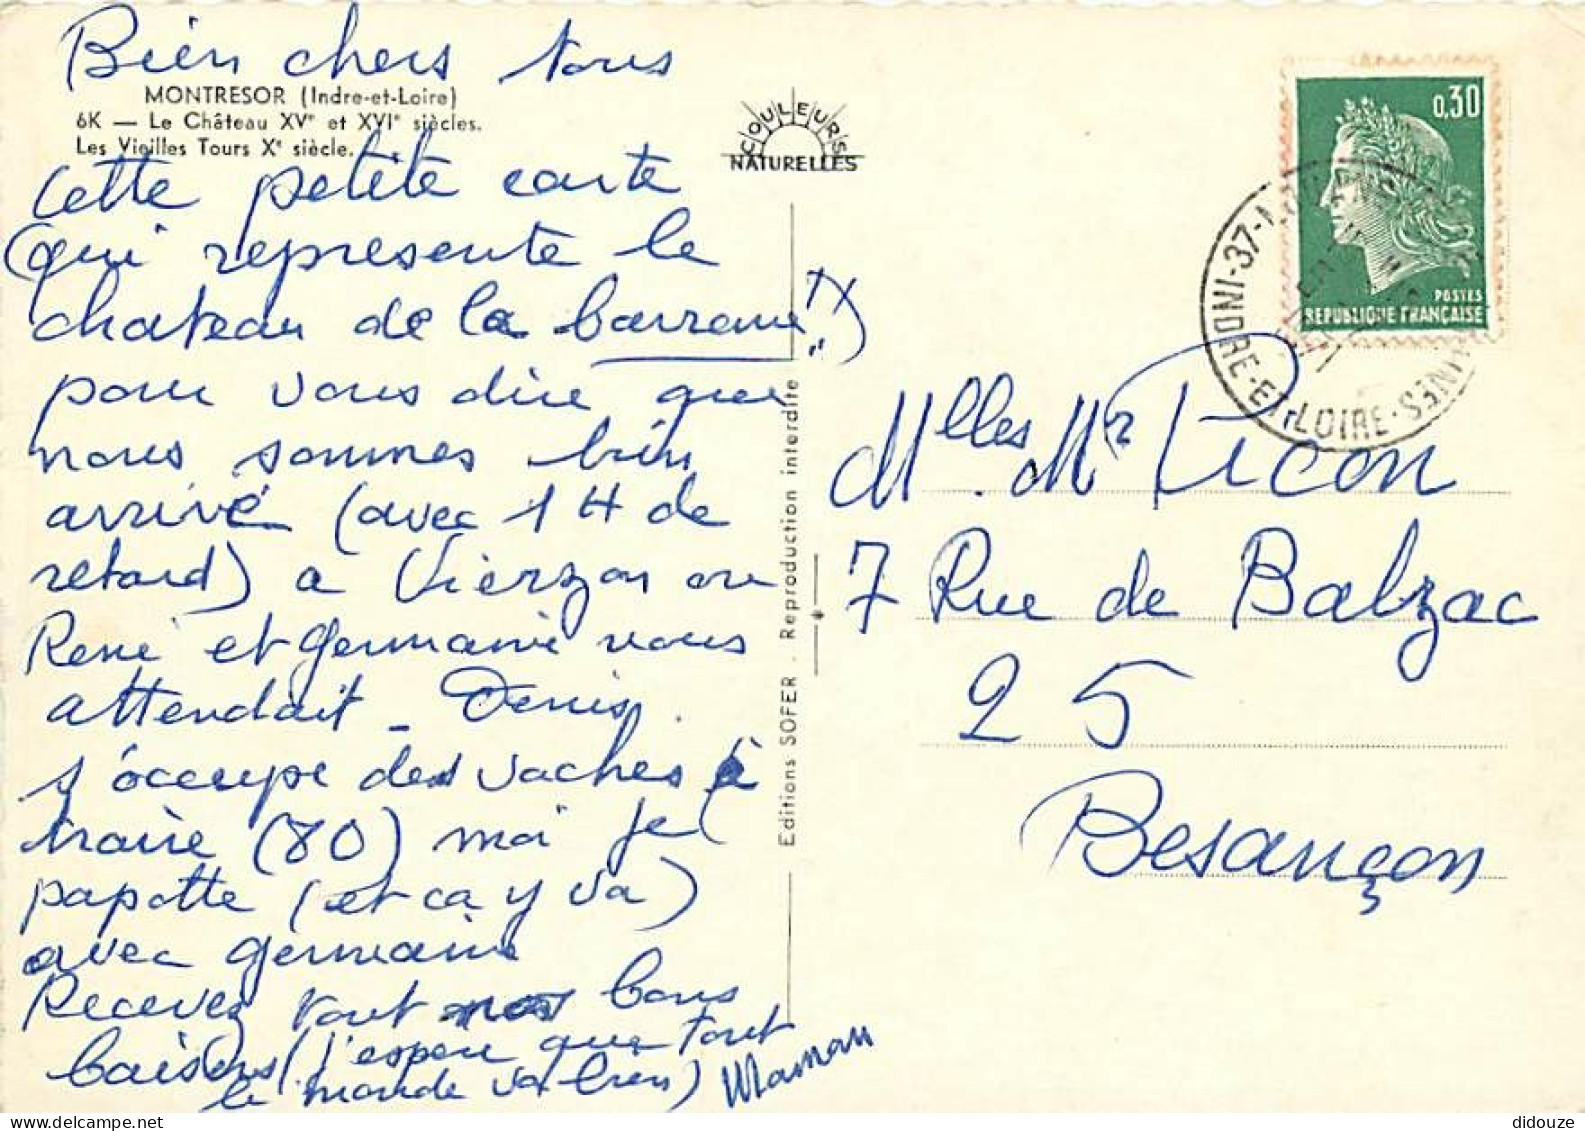 Bien chers tous
MONTRESOR (Indre-et-Loire)
6K — Le Château XVe et XVIe siècles.
Les Vieilles Tours Xe siècle.
Cette petite carte
(qui représente le
chateau de la barronie!!)
pour vous dire que
nous sommes bien
arrivé (avec 1 H de
retard) a Vierzon ou
René et germaine nous
attendait_ Denis
s'occupe des vaches à
traire (80) moi je
papotte (et ca y va)
avec germaine
Recevez tout nos bons
baisers (j'espere que tout
le monde va bien) Maman
COULEURS
NATURELLES
Editions SOFER . Reproduction interdite
0,30
POSTES
REPUBLIQUE FRANÇAISE
37
INDRE-ET-LOIRE
Mlles. Mr Picon
7 Rue de Balzac
25
Besançon
didouze